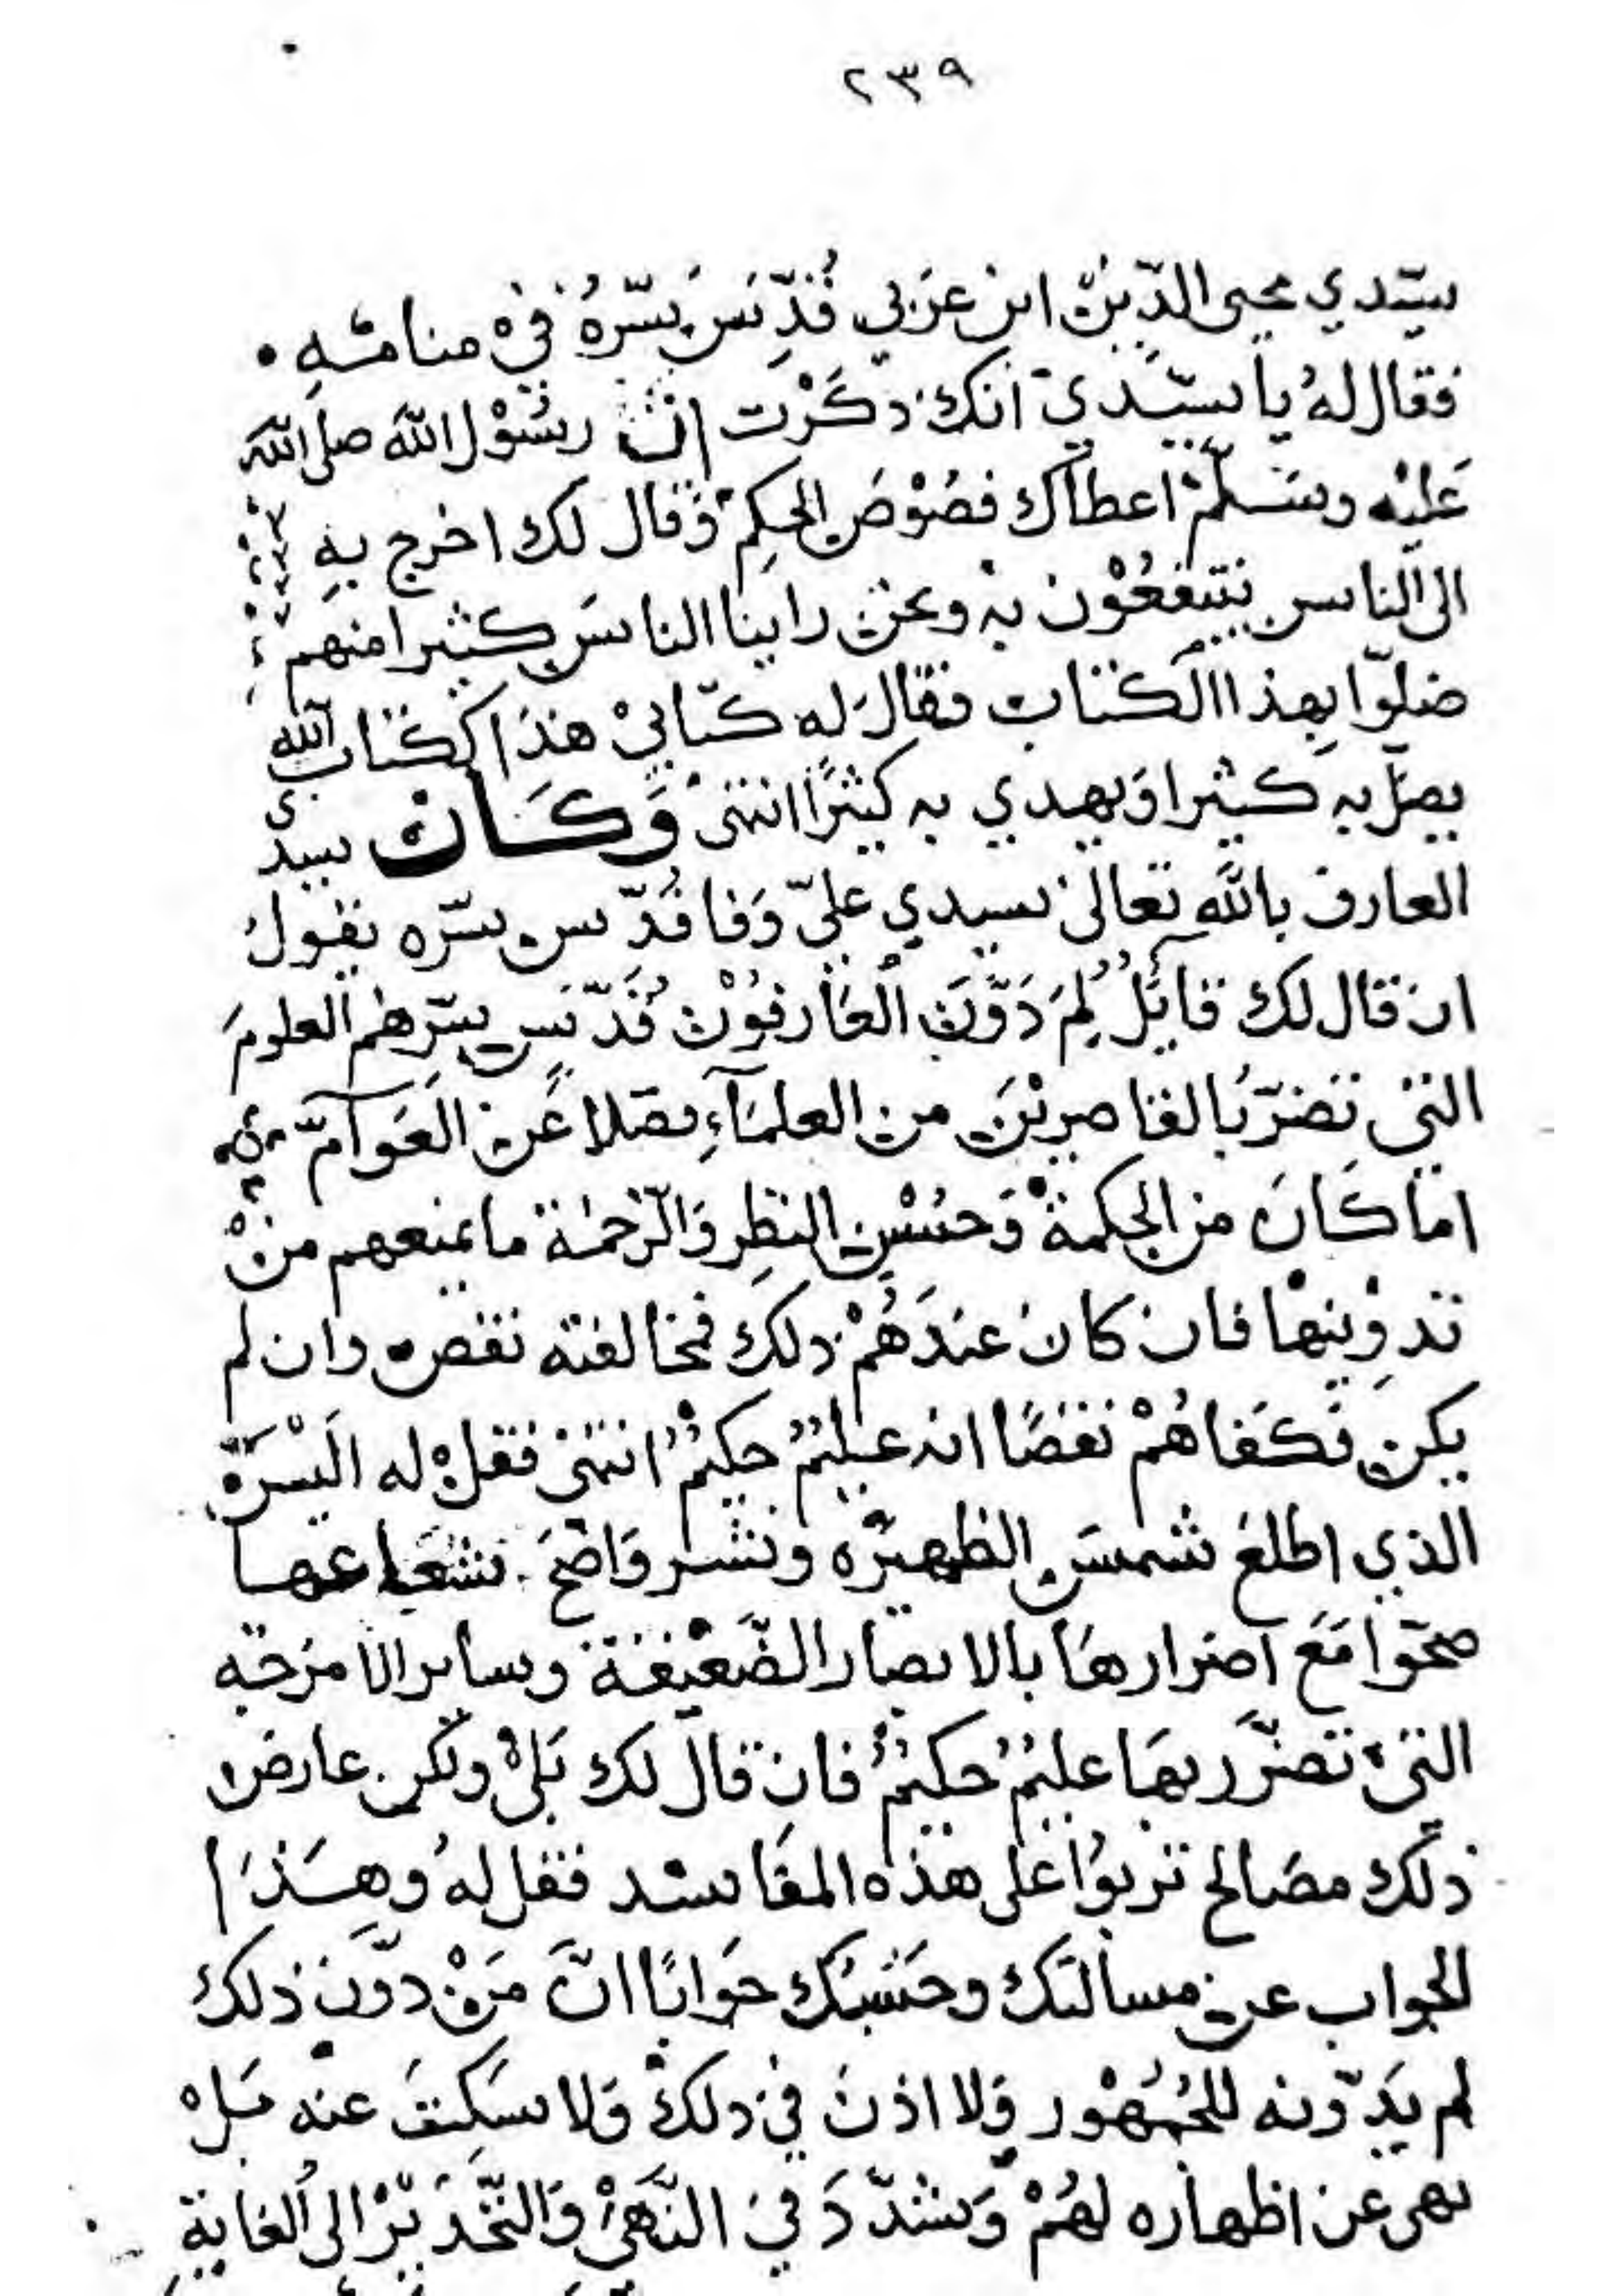 ٢٣٩
سيّدي محيى الدّين ابن عربي قُدِّسَ سِرّهُ في منامه •
فقال لهُ يا سيّدي انك ذكَرْت ان رسُوْل الله صلى الله
عَليْه وسَلمْ اعطاك فصُوْصَ الحِكم وَقال لك اخرج بهِ
الى الناس ينتفعُوْن به ونحن راينا الناسَ كثيرا منهم
ضلوّا بهذا الكتاب فقالَ له كتابيْ هذا ككتاب الله
يضلّ به كثيرا وَيهدي به كثيرًا انتهى وَكَان سيدى
العارف بالله تعالى سيدي عليّ وَفا قُدّس سرّه يقولُ
ان قال لك قائلُ لِمَ دَوَّنَ العَارفوُن قُدّسَ سِرّهم العلومَ
التي تضرّ بالقاصرِيْنَ من العلمَآءِ فضلا عَن العَوآمّ
اما كَانَ من الحِكمة وَحسْن النظِر وَالرّحمة ما يمنعهم منْ
تدوِينها فان كان عندَهُمْ ذلك فمخالفته نقص وان لم
يكن فكفاهُمْ نقصًا انه عليمُ حكيمُ انتهى فقلْ له الَيْسَ
الذي اطلعَ شمسَ الظهيرَه ونشر وَاضحَ شعَاعها
صحوا مَعَ اضرارهَا بالابصار الضّعيْفة وساير الامزجه
التيْ تضرّر بهَا عليمُ حكيمُ فان قال لك بَلىْ ولكن عارض
ذلك مصَالح تربوُا على هذه المفَاسد فقل لهُ وهَذَا
الجواب عن مسالتك وحَسْبُك جَوابًا انَّ مَنْ دوّن ذلك
لم يَدّونه للجُمْهُور وَلا اذنَ في ذلكْ وَلا سَكتَ عنه بَلْ
نهى عن اظهاره لهُمْ وَشدّدَ في النَّهْي وَالتّحْديْر الى الغاية